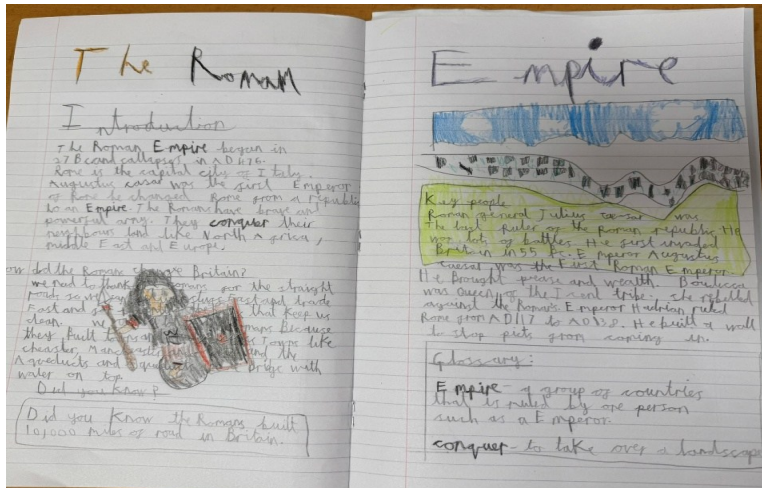 The Roman
Introduction
The Roman Empire began in
27 BC and collapsed in AD 476.
Rome is the capital city of Italy.
Augustus casar was the first Emperor
of Rome he changed Rome from a republic
to an Empire. The Romans have brave and
powerful army. They conquer their
neighbours land like North Africa,
middle East and Europe.
did the Romans Britain?
we need to thank for the straight
fast and trade
Fast and that keep us
clean. we because
they built Towns like
cheaster, Manchester and the
Aqueducts and Bridge with
water on top.
Did you know?
Did you know the Romans built
10,000 miles of road in Britain.
Empire
Key people
Roman general Julius caesar was
the last ruler of the Roman republic He
won lots of battles. He first invaded
Britain in 55 BC. Emperor Augustus
caesar was the First Roman Emperor.
He brought peace and wealth. Boudicca
was Queen of the Iceni tribe. She rebelled
against the Romans. Emperor Hadrian ruled
Rome from AD 117 to AD 138. He built a wall
to stop picts from coming in.
Glossary:
Empire - a group of countries
that is ruled by one person
such as a Emperor.
conquer - to take over a landscape